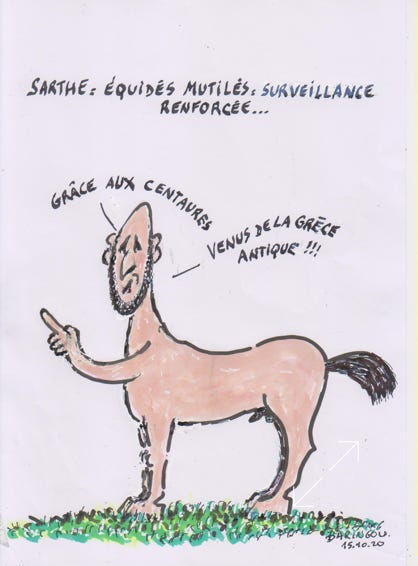 SARTHE: ÉQUIDÉS MUTILÉS: SURVEILLANCE
RENFORCÉE...
GRÂCE AUX CENTAURES
VENUS DE LA GRÈCE
ANTIQUE !!!
BARINGOU.
15.10.20